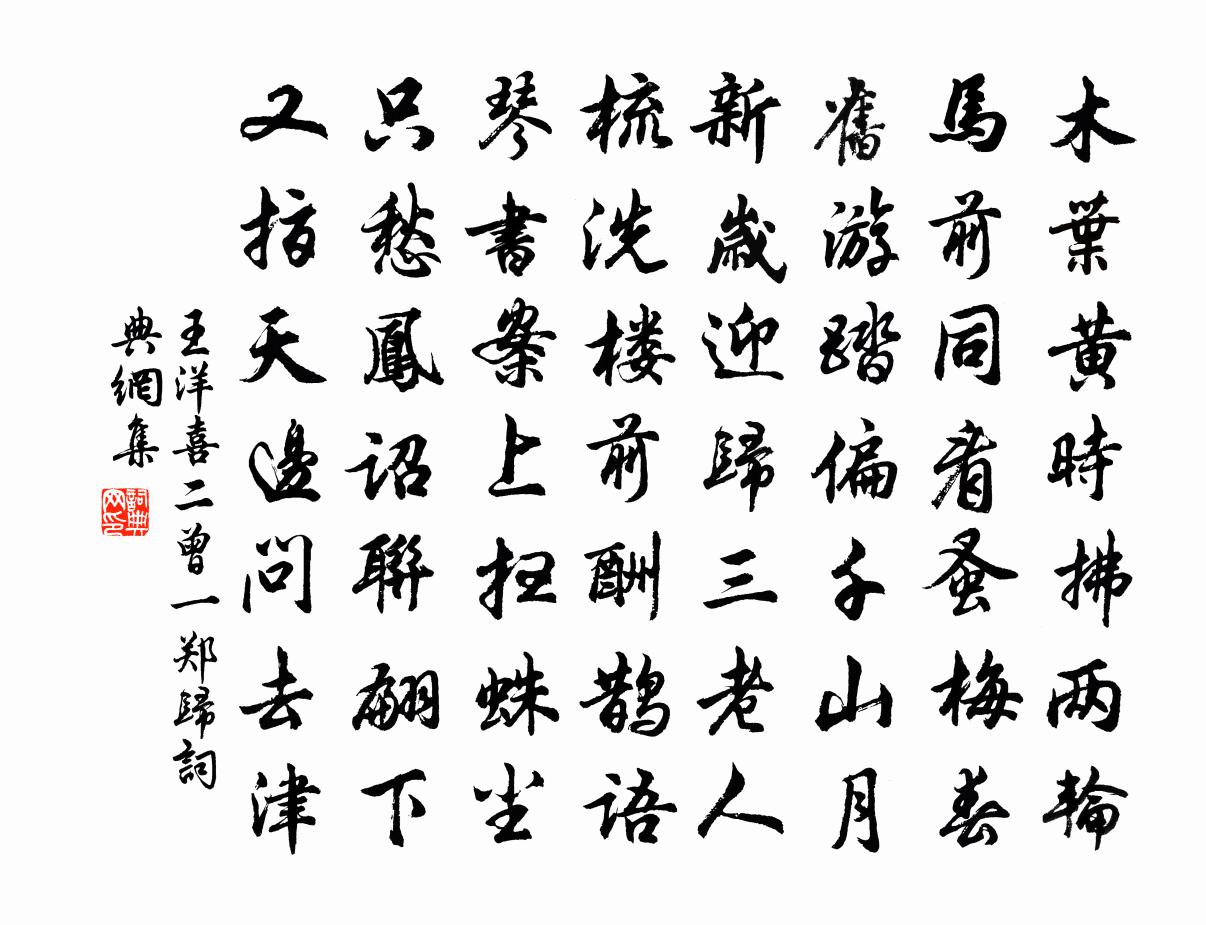 木葉黄時拂两輪
馬前同看蚤梅春
舊游踏偏千山月
新歲迎歸三老人
梳洗楼前酬鹊語
琴書案上扫蛛尘
只愁鳳詔聯翩下
又指天邊問去津
王洋喜二曾一郑歸詞
典網集
詞典网印